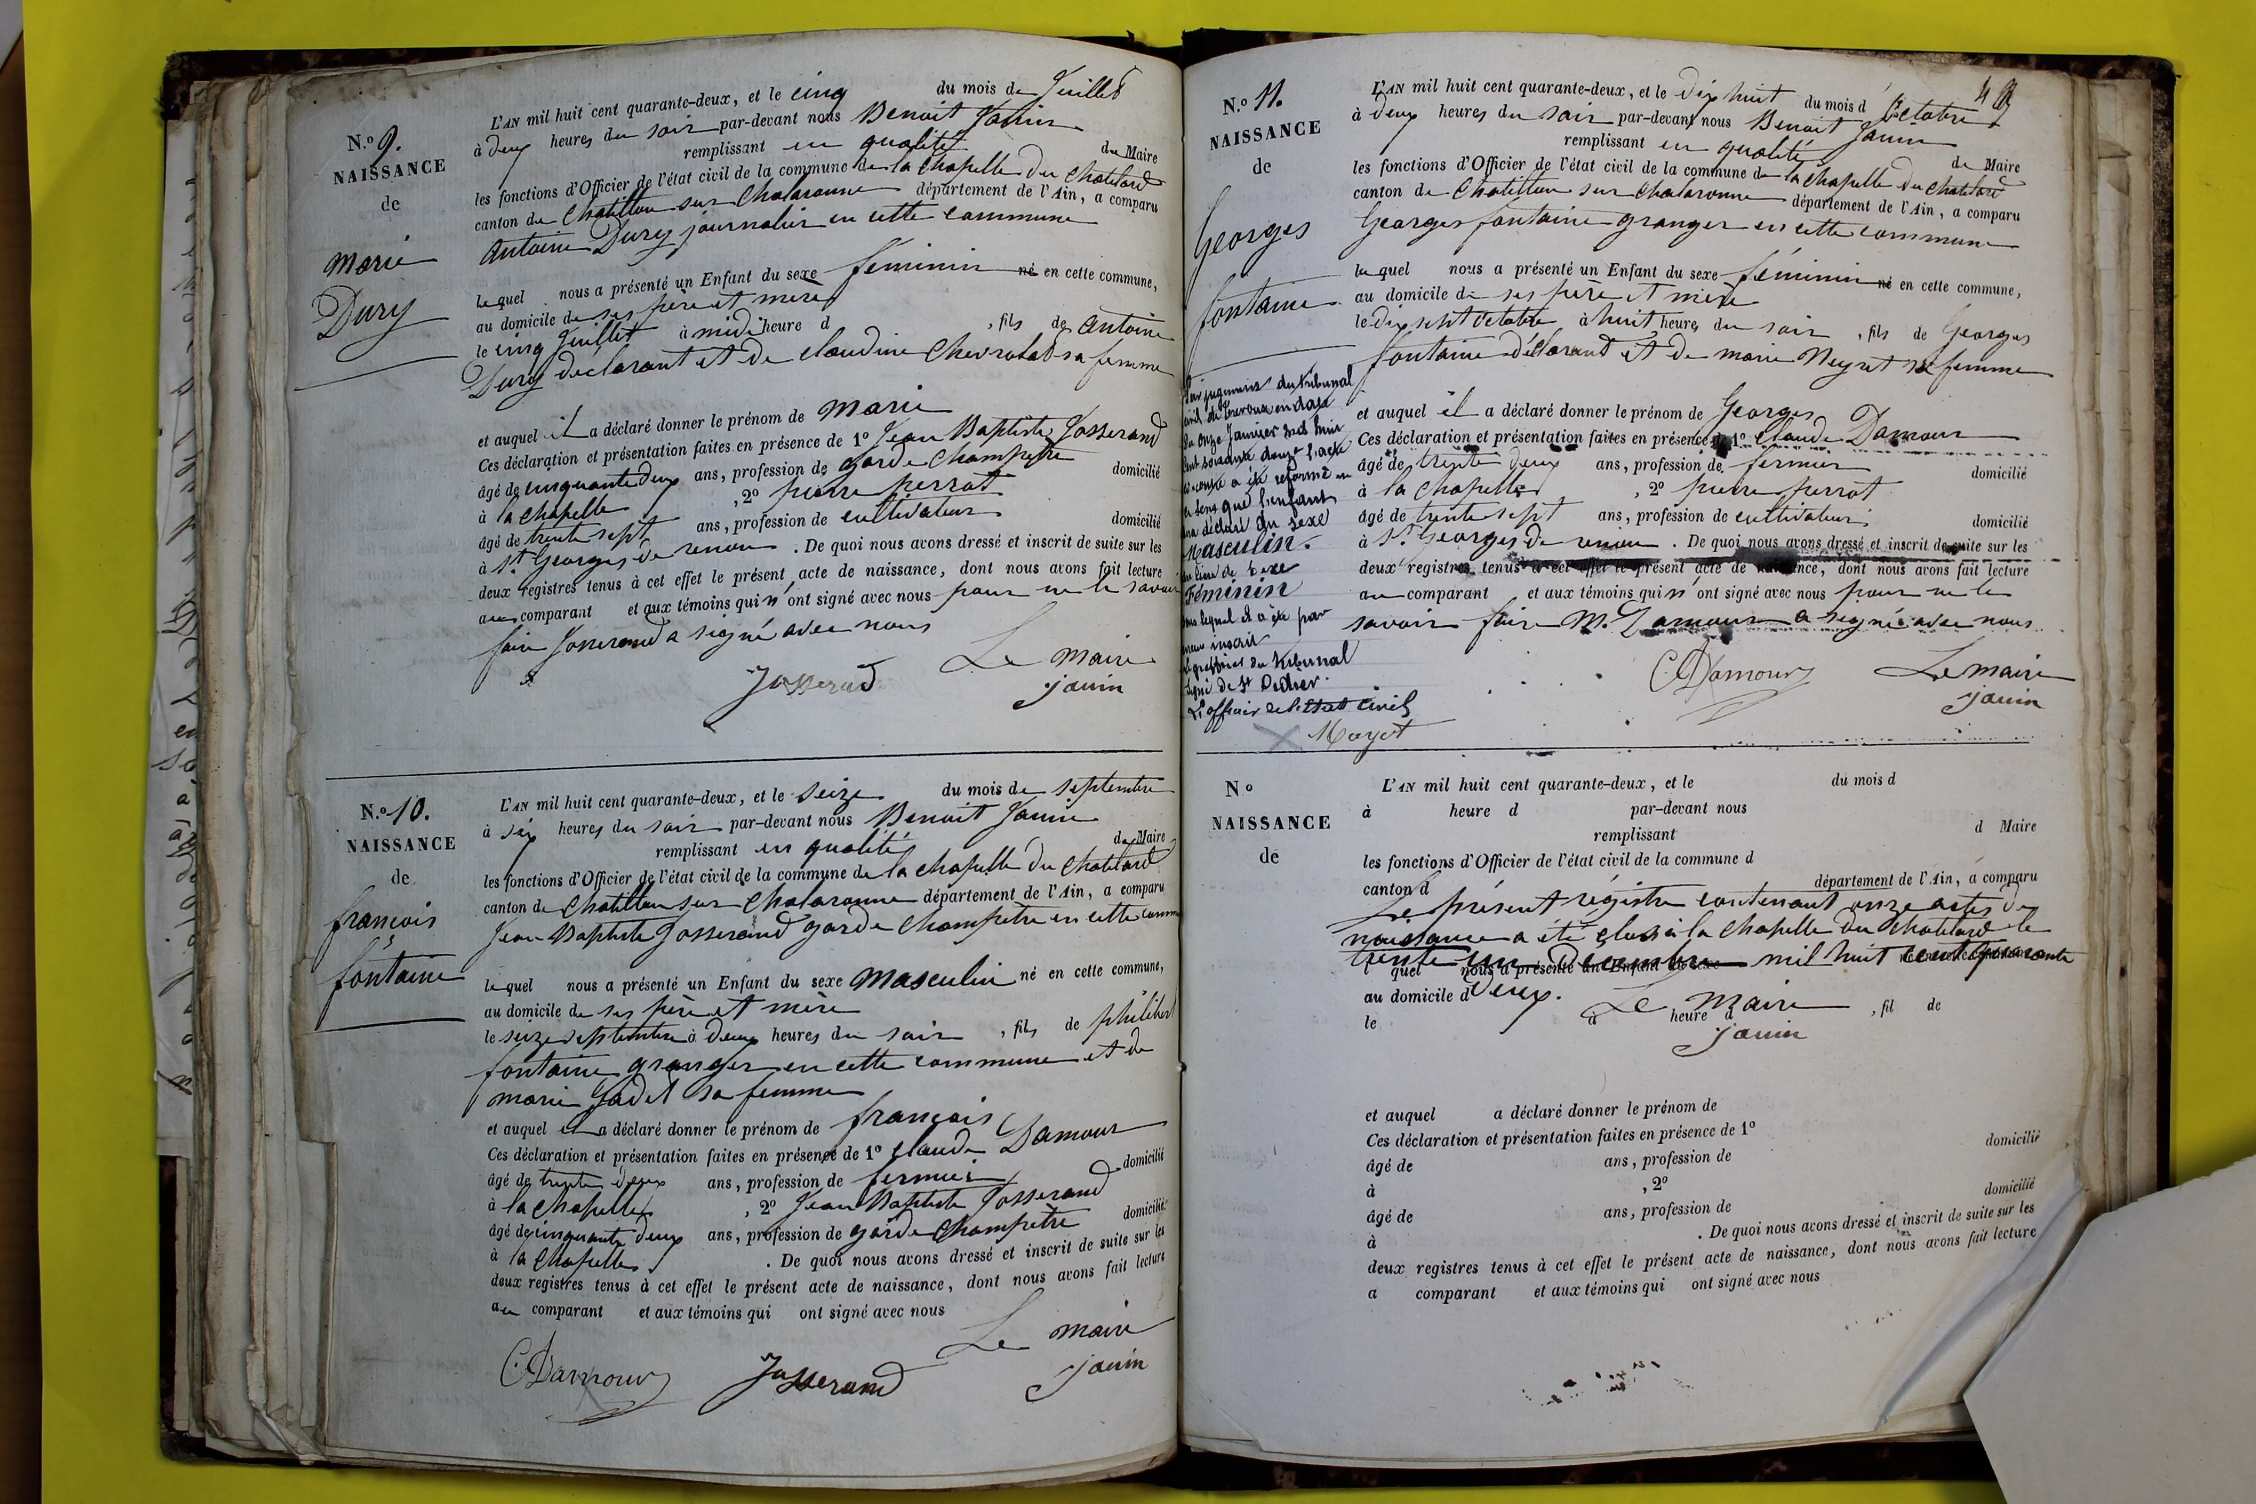 N.o 9.
NAISSANCE
de
Marie
Dury
L'AN mil huit cent quarante-deux, et le cinq du mois de Juillet
à deux heures du soir par-devant nous Benoit Janin
remplissant en qualité de Maire
les fonctions d'Officier de l'état civil de la commune de la Chapelle du Chatelard
canton de Chatillon sur Chalaronne département de l'Ain, a comparu
Antoine Dury journalier en cette commune
lequel nous a présenté un Enfant du sexe féminin né en cette commune,
au domicile de ses père et mère
le cinq Juillet à midi heure d , fils de Antoine
Dury déclarant et de Claudine Chevrolat sa femme
et auquel il a déclaré donner le prénom de Marie
Ces déclaration et présentation faites en présence de 1o Jean Baptiste Josserand
âgé de cinquante deux ans, profession de garde Champetre domicilié
à la Chapelle , 2o pierre perrat
âgé de trente sept ans, profession de cultivateur domicilié
à St Georges de renon . De quoi nous avons dressé et inscrit de suite sur les
deux registres tenus à cet effet le présent acte de naissance, dont nous avons fait lecture
au comparant et aux témoins qui n'ont signé avec nous pour ne le savoir
faire Josserand a signé avec nous
Le Maire
Josserand janin
N.o 10.
NAISSANCE
de
françois
fontaine
L'AN mil huit cent quarante-deux, et le seize du mois de septembre
à six heures du soir par-devant nous Benoit Janin
remplissant en qualité de Maire
les fonctions d'Officier de l'état civil de la commune de la Chapelle du Chatelard
canton de Chatillon sur Chalaronne département de l'Ain, a comparu
Jean Baptiste Josserand garde Champetre en cette commune
lequel nous a présenté un Enfant du sexe masculin né en cette commune,
au domicile de ses père et mère
le seize septembre à deux heures du soir , fils de philibert
fontaine granger en cette commune et de
marie Gadet sa femme
et auquel il a déclaré donner le prénom de françois
Ces déclaration et présentation faites en présence de 1o Claude Damour
âgé de trente deux ans, profession de fermier domicilié
à la Chapelle , 2o Jean Baptiste Josserand
âgé de cinquante deux ans, profession de garde Champetre domicilié
à la Chapelle . De quoi nous avons dressé et inscrit de suite sur les
deux registres tenus à cet effet le présent acte de naissance, dont nous avons fait lecture
au comparant et aux témoins qui ont signé avec nous
Le Maire
C. Damour Josserand janin
N.o 11.
NAISSANCE
de
Georges
fontaine
L'AN mil huit cent quarante-deux, et le dix huit du mois d'octobre
à deux heures du soir par-devant nous Benoit Janin
remplissant en qualité de Maire
les fonctions d'Officier de l'état civil de la commune de la Chapelle du Chatelard
canton de Chatillon sur Chalaronne département de l'Ain, a comparu
Georges fontaine granger en cette commune
lequel nous a présenté un Enfant du sexe féminin né en cette commune,
au domicile de ses père et mère
le dix sept octobre à huit heures du soir , fils de Georges
fontaine déclarant et de marie Neyret sa femme
et auquel il a déclaré donner le prénom de Georges
Ces déclaration et présentation faites en présence de 1o Claude Damour
âgé de trente deux ans, profession de fermier domicilié
à la Chapelle , 2o pierre perrat
âgé de trente sept ans, profession de cultivateur domicilié
à St Georges de renon . De quoi nous avons dressé et inscrit de suite sur les
deux registres tenus à cet effet le présent acte de naissance, dont nous avons fait lecture
au comparant et aux témoins qui n'ont signé avec nous pour ne le
savoir faire M. Damour a signé avec nous
C. Damour Le maire
janin
Par jugement du tribunal
civil de Trevoux en date
du onze Janvier mil huit
cent soixante douze l'acte
ci-contre a été reformé en
ce sens que l'enfant
sera déclaré du sexe
Masculin
au lieu de sexe
Féminin
sous lequel il a été par
erreur inscrit
Le greffier du tribunal
signé de St Didier
L'officier de l'état civil
Mayet
N o
NAISSANCE
de
L'AN mil huit cent quarante-deux, et le du mois d
à heure d par-devant nous
remplissant d Maire
les fonctions d'Officier de l'état civil de la commune d
canton d département de l'Ain, a comparu
Le présent régistre contenant onze actes de
naissance a été clos à la Chapelle du Chatelard le
trente un Decembre mil huit cent quarante
quel nous a présenté un Enfant du sexe
au domicile d deux. Le Maire
le à heure d , fil de
janin
et auquel a déclaré donner le prénom de
Ces déclaration et présentation faites en présence de 1o
âgé de ans, profession de domicilié
à , 2o
âgé de ans, profession de domicilié
à . De quoi nous avons dressé et inscrit de suite sur les
deux registres tenus à cet effet le présent acte de naissance, dont nous avons fait lecture
a comparant et aux témoins qui ont signé avec nous